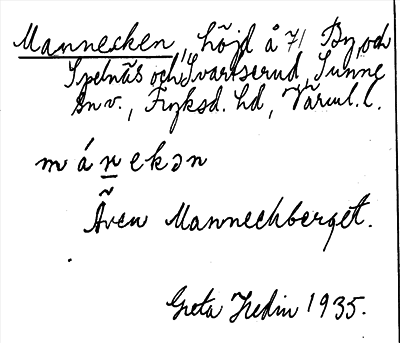 Mannecken, höjd å 71 By och
Spelnäs och Svartserud, Sunne
sn v., Fryksd. hd, Värml. l.
mánekən
Även Mannechberget.
Greta Hedin 1935.